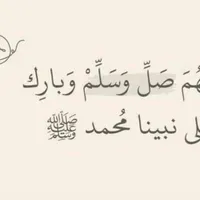 هُمَ صَلِّ وَسَلِّمْ وَبارِك
لى نبينا مُحمد ﷺ